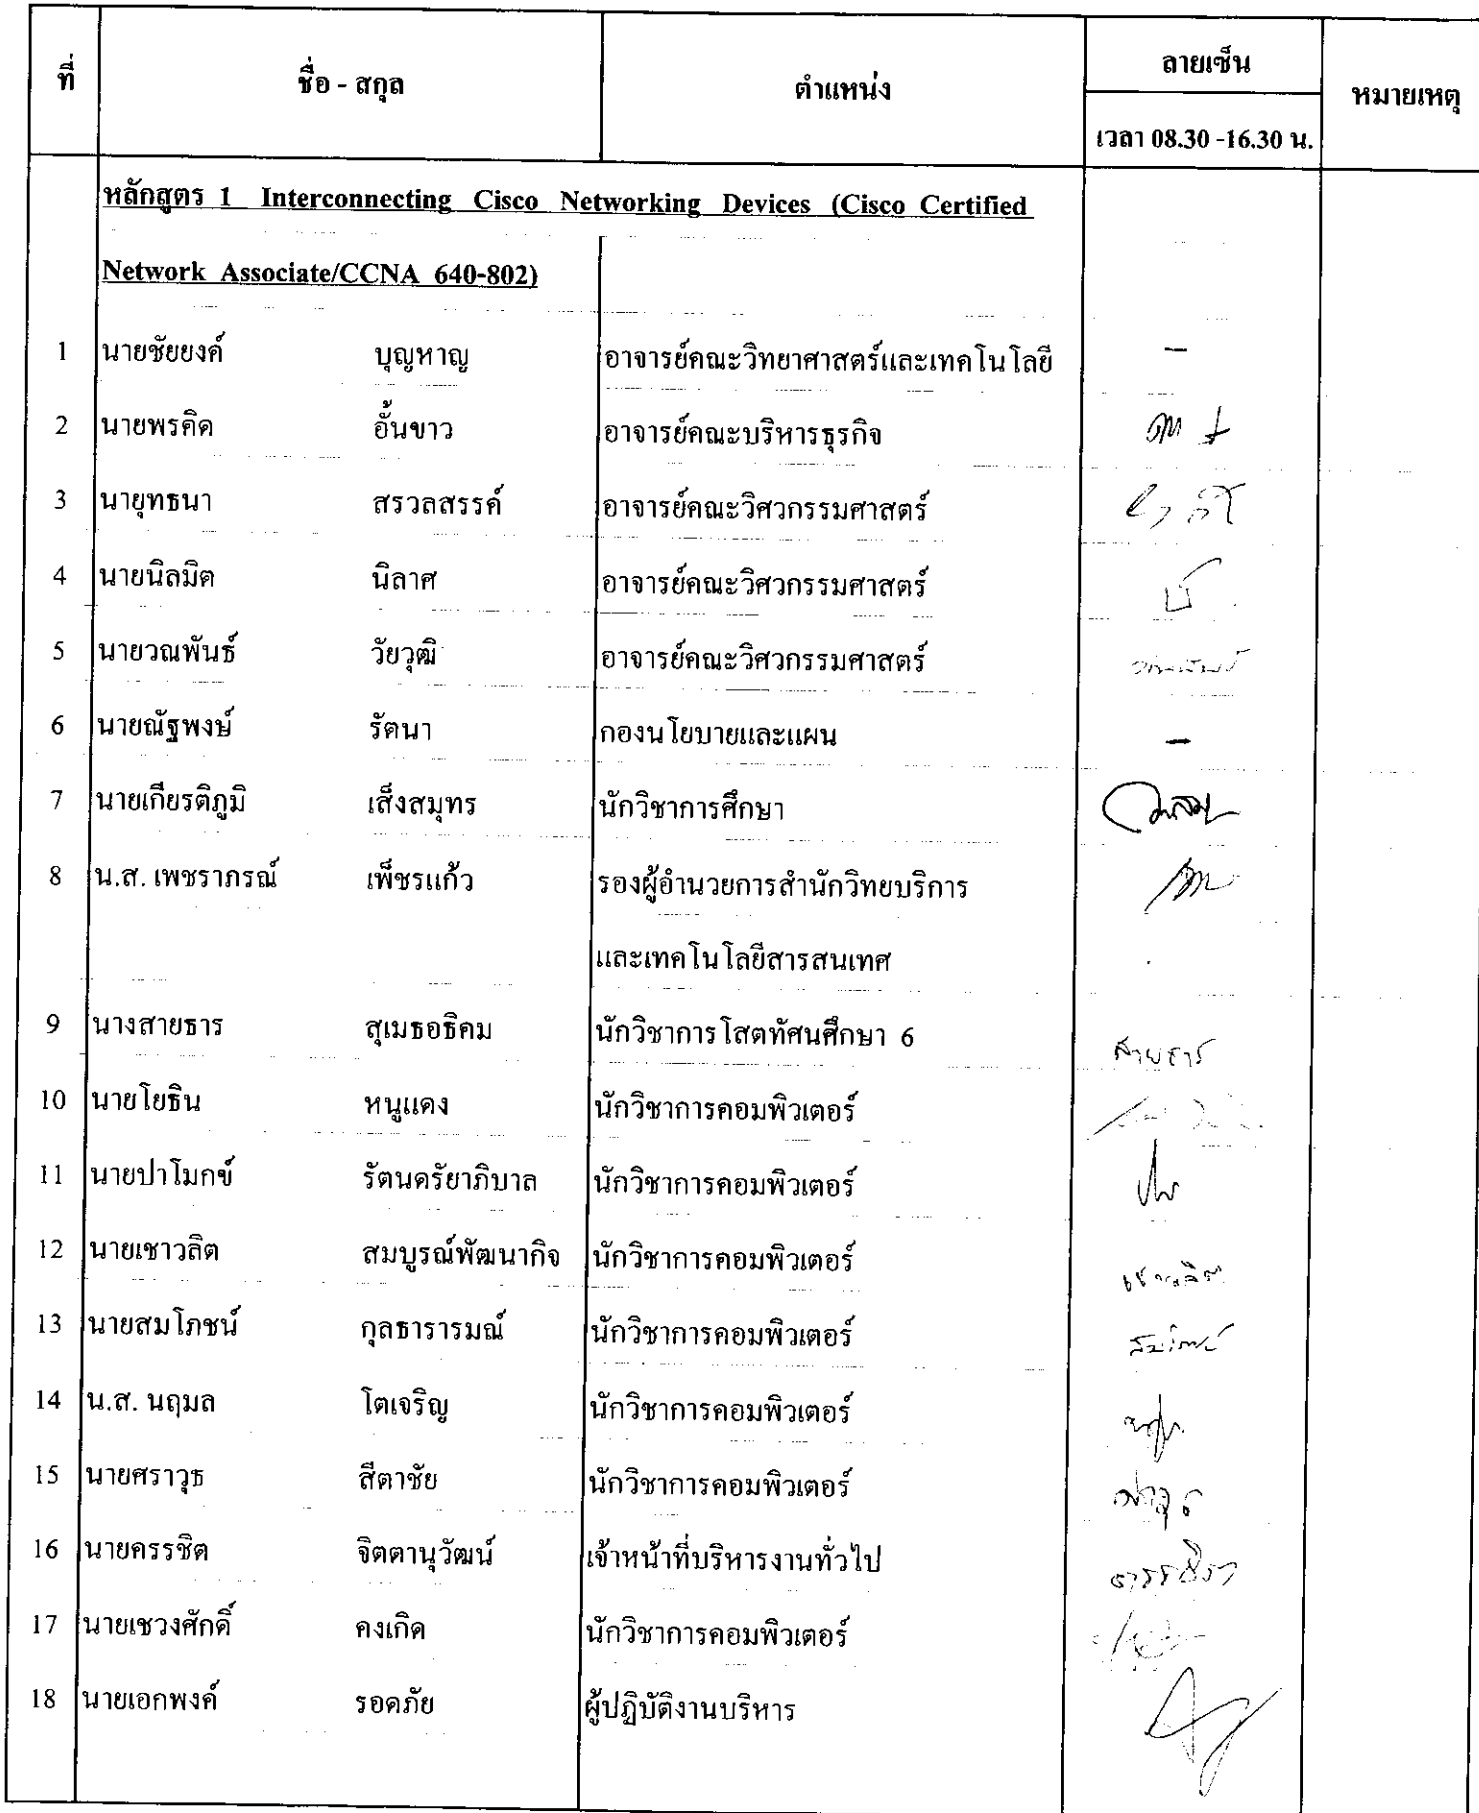 ที่ ชื่อ - สกุล ตำแหน่ง ลายเซ็น หมายเหตุ
เวลา 08.30 -16.30 น.
หลักสูตร 1 Interconnecting Cisco Networking Devices (Cisco Certified
Network Associate/CCNA 640-802)
1 นายชัยยงค์ บุญหาญ อาจารย์คณะวิทยาศาสตร์และเทคโนโลยี –
2 นายพรคิด อั้นขาว อาจารย์คณะบริหารธุรกิจ
3 นายุทธนา สรวลสรรค์ อาจารย์คณะวิศวกรรมศาสตร์
4 นายนิลมิต นิลาศ อาจารย์คณะวิศวกรรมศาสตร์
5 นายวณพันธ์ วัยวุฒิ อาจารย์คณะวิศวกรรมศาสตร์
6 นายณัฐพงษ์ รัตนา กองนโยบายและแผน –
7 นายเกียรติภูมิ เส็งสมุทร นักวิชาการศึกษา
8 น.ส. เพชราภรณ์ เพ็ชรแก้ว รองผู้อำนวยการสำนักวิทยบริการ
และเทคโนโลยีสารสนเทศ
9 นางสายธาร สุเมธอธิคม นักวิชาการโสตทัศนศึกษา 6 สายธาร
10 นายโยธิน หนูแดง นักวิชาการคอมพิวเตอร์
11 นายปาโมกข์ รัตนตรัยาภิบาล นักวิชาการคอมพิวเตอร์
12 นายเชาวลิต สมบูรณ์พัฒนากิจ นักวิชาการคอมพิวเตอร์
13 นายสมโภชน์ กุลธารารมณ์ นักวิชาการคอมพิวเตอร์
14 น.ส. นฤมล โตเจริญ นักวิชาการคอมพิวเตอร์
15 นายศราวุธ สีตาชัย นักวิชาการคอมพิวเตอร์
16 นายครรชิต จิตตานุวัฒน์ เจ้าหน้าที่บริหารงานทั่วไป
17 นายเชวงศักดิ์ คงเกิด นักวิชาการคอมพิวเตอร์
18 นายเอกพงค์ รอดภัย ผู้ปฏิบัติงานบริหาร